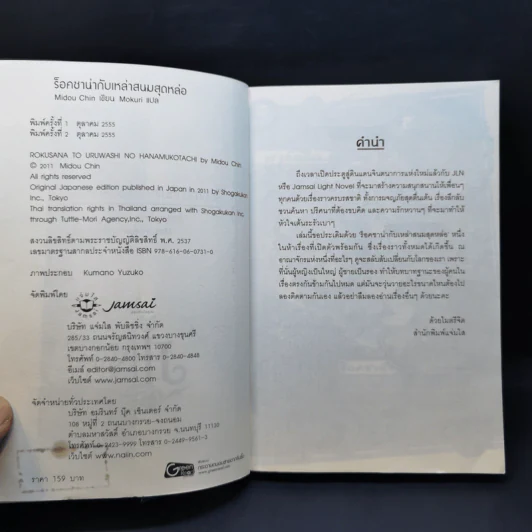 ร็อคซาน่ากับเหล่าสนมสุดหล่อ
Midou Chin เขียน Mokuri แปล
พิมพ์ครั้งที่ 1 ตุลาคม 2555
พิมพ์ครั้งที่ 2 ตุลาคม 2555
ROKUSANA TO URUWASHI NO HANAMUKOTACHI by Midou Chin
© 2011 Midou Chin
All rights reserved
Original Japanese edition published in Japan in 2011 by Shogakukan
Inc., Tokyo
Thai translation rights in Thailand arranged with Shogakukan Inc.
through Tuttle-Mori Agency,Inc., Tokyo
สงวนลิขสิทธิ์ตามพระราชบัญญัติลิขสิทธิ์ พ.ศ. 2537
เลขมาตรฐานสากลประจำหนังสือ ISBN 978-616-06-0731-0
ภาพประกอบ Kumano Yuzuko
จัดพิมพ์โดย
Jamsai
บริษัท แจ่มใส พับลิชชิ่ง จำกัด
285/33 ถนนจรัญสนิทวงศ์ แขวงบางขุนศรี
เขตบางกอกน้อย กรุงเทพฯ 10700
โทรศัพท์ 0-2840-4800 โทรสาร 0-2840-4848
อีเมล์ editor@jamsai.com
เว็บไซต์ www.jamsai.com
จัดจำหน่ายทั่วประเทศโดย
บริษัท อมรินทร์ บุ๊ค เซ็นเตอร์ จำกัด
108 หมู่ที่ 2 ถนนบางกรวย-จงถนอม
ตำบลมหาสวัสดิ์ อำเภอบางกรวย จ.นนทบุรี 11130
โทรศัพท์ 0-2423-9999 โทรสาร 0-2449-9561-3
เว็บไซต์ www.naiin.com
ราคา 159 บาท
Green
คำนำ
ถึงเวลาเปิดประตูสู่ดินแดนจินตนาการแห่งใหม่แล้วกับ JLN
หรือ Jamsai Light Novel ที่จะมาสร้างความสนุกสนานให้เพื่อนๆ
ทุกคนด้วยเรื่องราวครบรสชาติ ทั้งการผจญภัยสุดตื่นเต้น เรื่องลึกลับ
ชวนค้นหา ปริศนาที่ต้องขบคิด และความรักหวานๆ ที่จะมาทำให้
หัวใจเต้นระรัวเบาๆ
เล่มนี้ขอประเดิมด้วย ร็อคซาน่ากับเหล่าสนมสุดหล่อ หนึ่ง
ในห้าเรื่องที่เปิดตัวพร้อมกัน ซึ่งเรื่องราวทั้งหมดได้เกิดขึ้น ณ
อาณาจักรแห่งหนึ่งที่อะไรๆ ดูจะสลับสับเปลี่ยนกับโลกของเรา เพราะ
ที่นั่นผู้หญิงเป็นใหญ่ ผู้ชายเป็นรอง ทำให้บทบาทฐานะของผู้คนใน
เรื่องตรงกันข้ามกันไปหมด แต่มันจะวุ่นวายอะไรขนาดไหนต้องไป
ลองติดตามกันเอง แล้วอย่าลืมลองอ่านเรื่องอื่นๆ ด้วยนะคะ
ด้วยไมตรีจิต
สำนักพิมพ์แจ่มใส